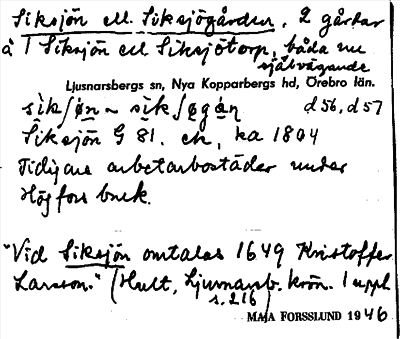 Siksjön ell. Siksjögården, 2 gårdar
à T Siksjön ell Siksjötorp, båda nu
självägande
Ljusnarsbergs sn, Nya Kopparbergs hd, Örebro län.
sik/øn ~ sik/øgan d 56, d 57
Siksjön G 81. ek, ka 1804
Tidigare arbetarbostäder under
Högfors bruk.
"Vid Siksjön omtalas 1649 Kristoffer
Larsson." (Hult, Ljusnarsb. krön. 1 uppl
s. 216)
MAJA FORSSLUND 1946